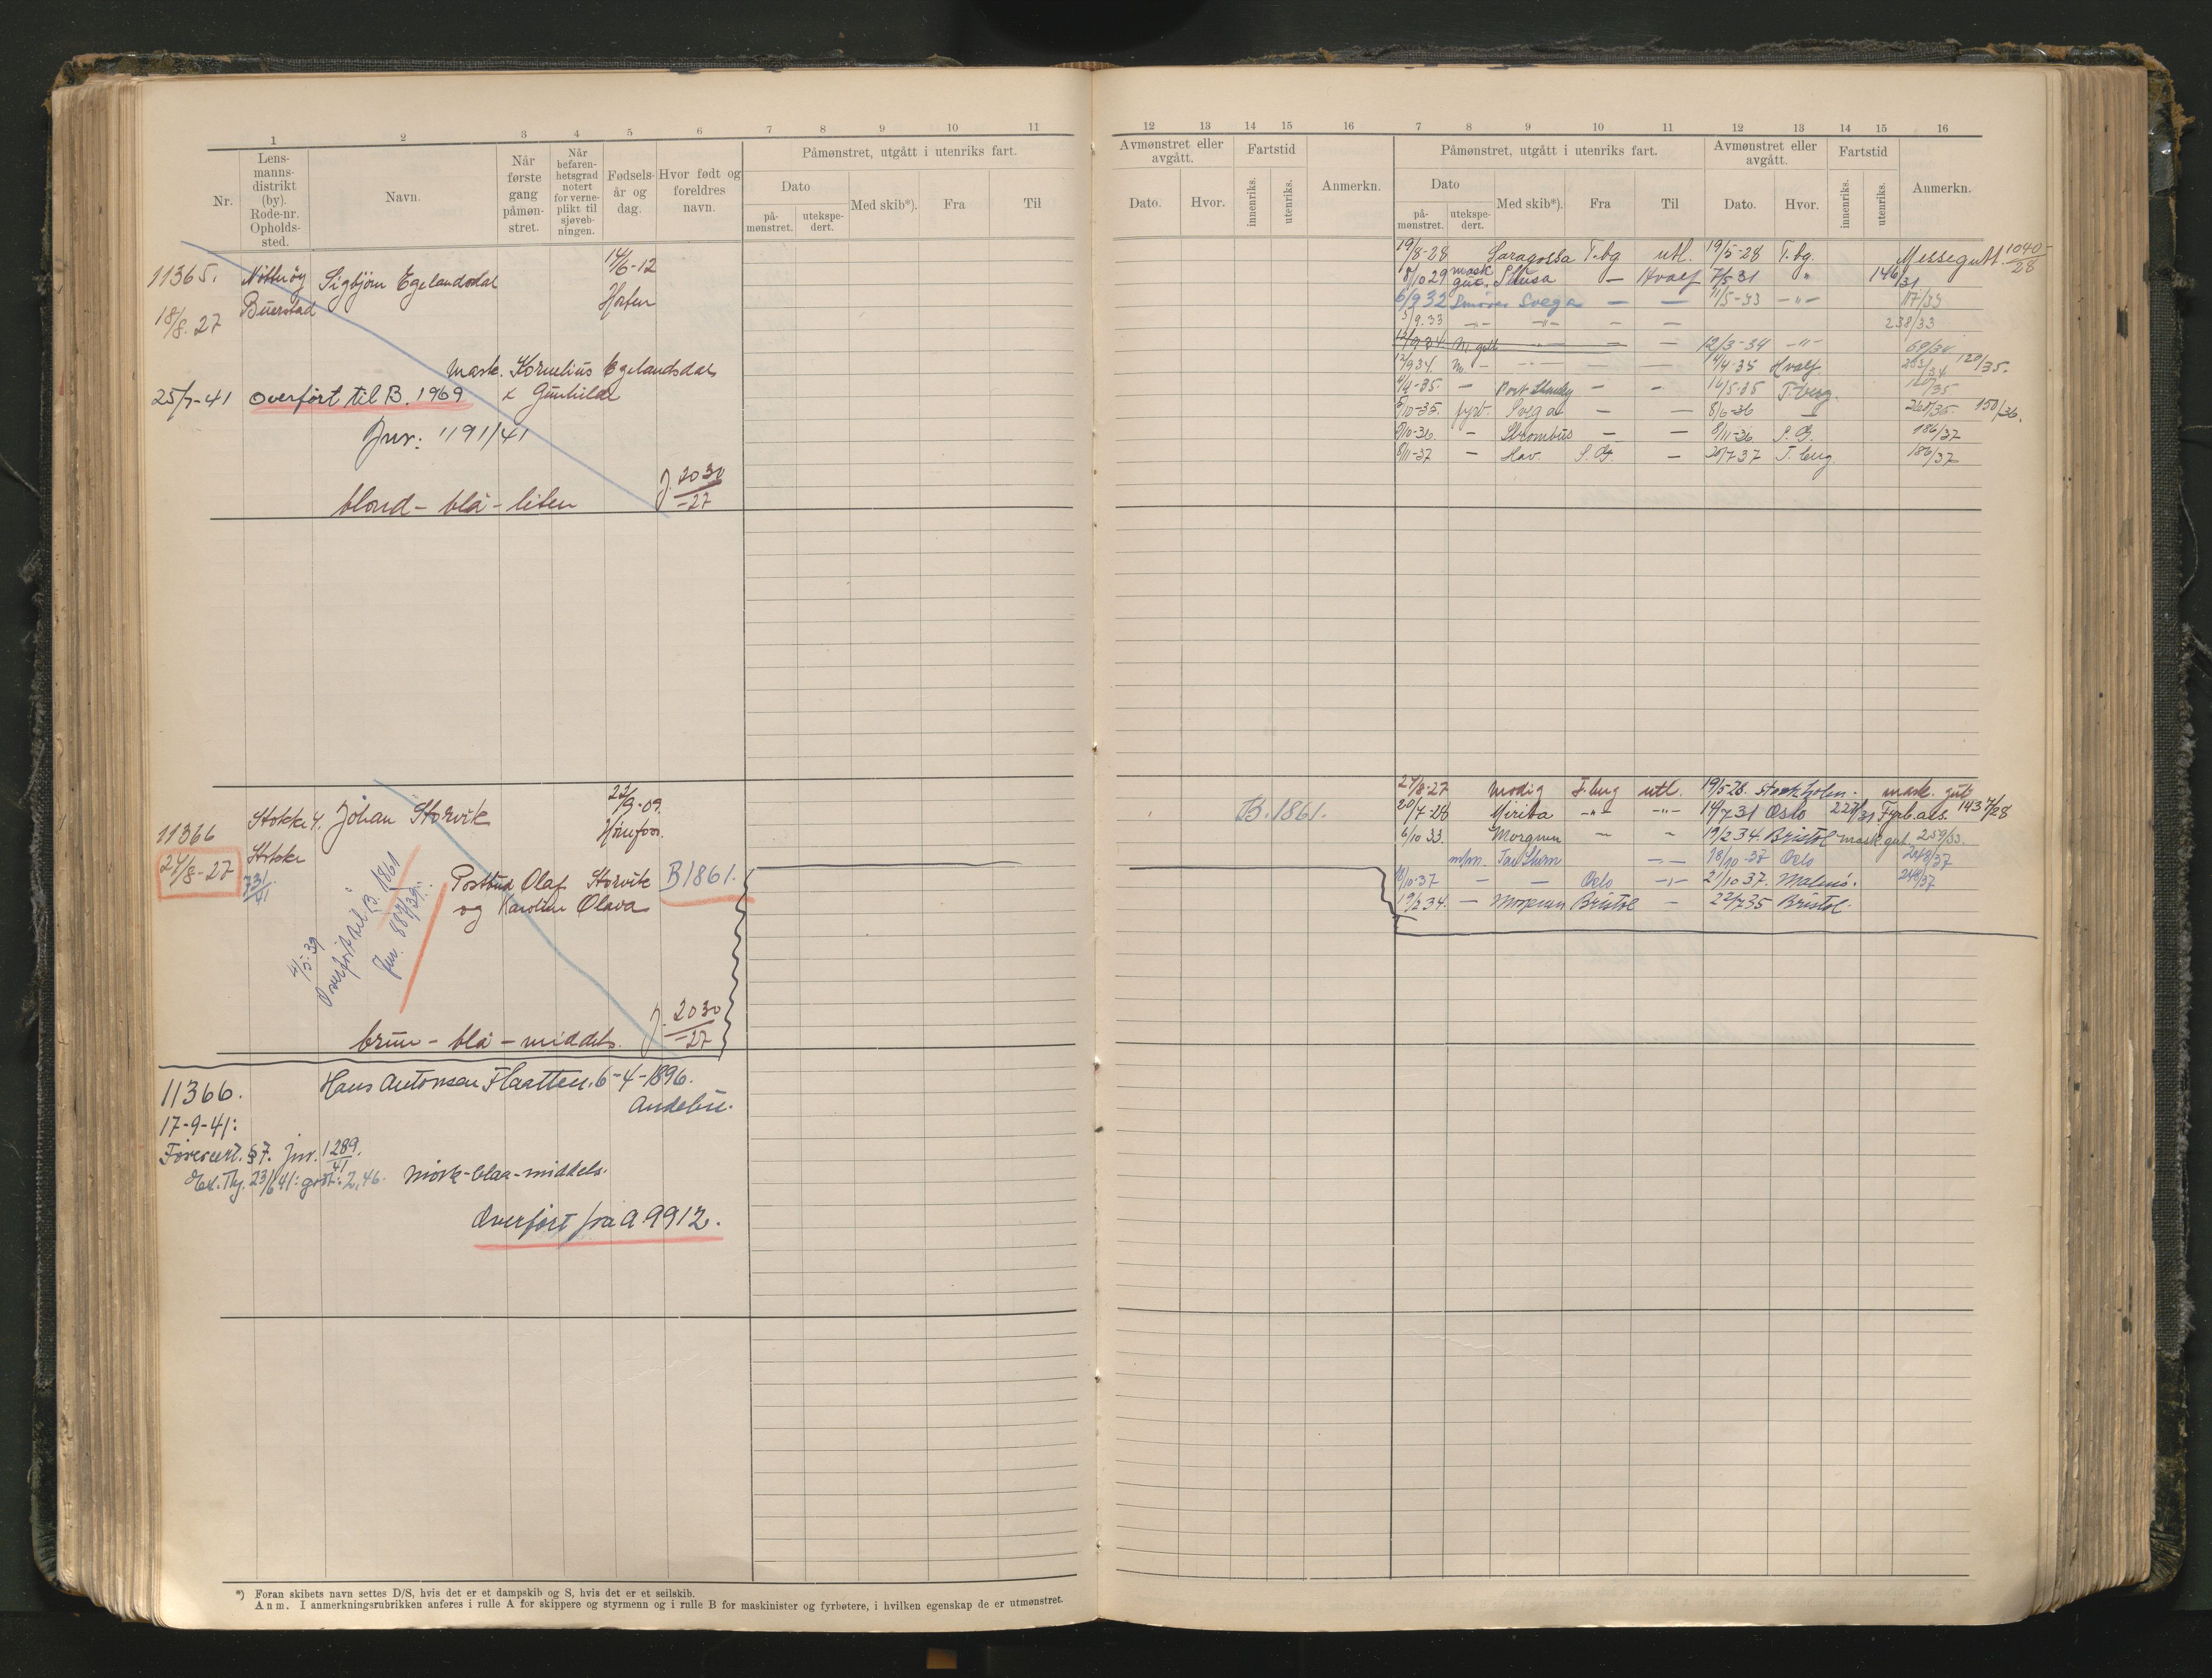 1 2 3 4 5 6 7 8 9 10 11
Nr.
Lens-
manns-
distrikt
(by).
Rode-nr.
Opholds-
sted.
Navn.
Når
første
gang
påmøn-
stret.
Når
befaren-
hetsgrad
notert
for verne-
plikt til
sjøveb-
ningen.
Fødsels-
år og
dag.
Hvor født og
foreldres
navn.
Påmønstret, utgått i utenriks fart.
Dato
på-
mønstret.
utekspe-
dert.
Med skib*).
Fra
Til
11365. Nøtterøy Sigbjørn Egelandsdal 14/6-12
18/8. 27 Buerstad Horten
Mask. Kornelius Egelandsdal
25/7-41 Overført til B. 1969 & Gunhilde
Jnr: 1191/41
blond - blå - liten J. 2030/-27
11366 Stokke 4. Johan Storvik 22/9-09.
24/8-27 Stokke
731/41
Postbud Olaf Storvik B1861.
og Karoline Olava
4/5-39
Overført til B. 1861
Jnr. 887/39.
brun - blå - middels. J. 2030/-27
11366. Hans Antonsen Flaatten. 6-4-1896.
Andebu.
17-9-41:
Førercert. §7. Jnr. 1289/41
23/6 41: godt: 2,46. Mørk-blaa-middels.
Overført fra A 9912.
*) Foran skibets navn settes D/S, hvis det er et dampskib og S, hvis det er et seilskib.
Anm. I anmerkningsrubrikken anføres i rulle A for skippere og styrmenn og i rulle B for maskinister og fyrbøtere, i hvilken egenskap de er utmønstret.
12 13 14 15 16 7 8 9 10 11 12 13 14 15 16
Avmønstret eller
avgått.
Dato.
Hvor.
Fartstid
innenriks.
utenriks.
Anmerkn.
Påmønstret, utgått i utenriks fart.
Dato
på-
mønstret.
utekspe-
dert.
Med skib*).
Fra
Til
Avmønstret eller
avgått.
Dato.
Hvor.
Fartstid
innenriks.
utenriks.
Anmerkn.
19/8-28 Saragossa T.bg utl. 19/5-28 T.bg. Messegutt. 1040/28
8/10 29 mask gut. — Hvalf 7/5 31 " 146/31
6/9 32 Smører Svega — — 11/5-33 -"- 117/33
5/9.33 -"- -"- — — 238/33
12/9 34 M. gutt -"- — 12/3-34 -"- 69/34
12/9 34. M. — — 4/4-35 Hvalf 253/34 120/35.
4/4-35. — — — 16/5-35 T.berg. 120/35
5/10-35. fyrb. Svega — — 8/6-36 — 268/35. 150/36.
5/10-36 — Strombus — — 8/11-36 S.G. 186/37
8/11-37 — Hav S.G. — 20/7-37 T.berg. 186/37
24/8-27 Modig T.berg utl. 19/5-28. Stockholm. mask. gut
B. 1861.
20/7-28 Mirita -"- -"- 14/7 31 Oslo 227/31 Fyrb.ass. 1437/28
6/10 33. Morgnen — " 19/2 34 Bristol mask gut 259/33.
m/m. — 18/10-37 Oslo 248/37
18/10-37 — — Oslo -"- 21/10 37. Malmö. 248/37
19/2 34. — Morgnen Bristol — 22/7 35 Bristol.